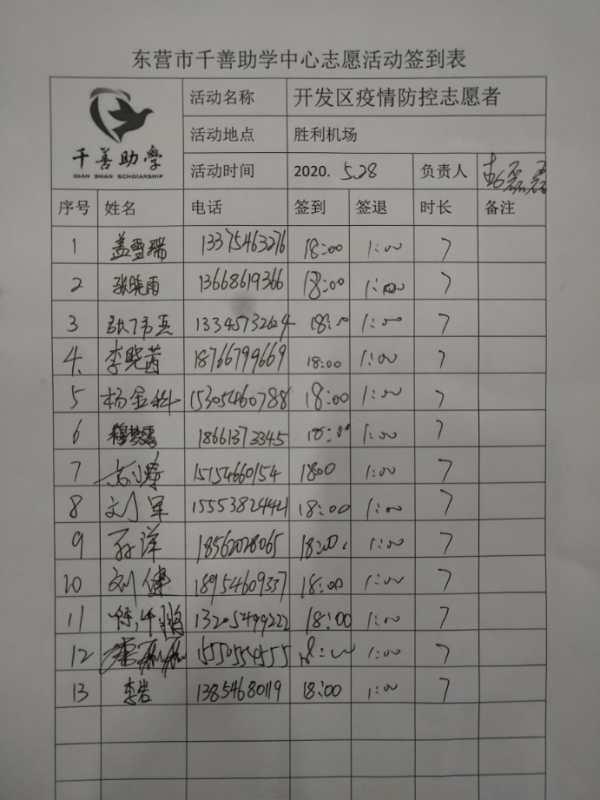 东营市千善助学中心志愿活动签到表
千善助学
QIAN SHAN SCHOLARSHIP
活动名称 开发区疫情防控志愿者
活动地点 胜利机场
活动时间 2020. 5.28 负责人
序号 姓名 电话 签到 签退 时长 备注
1 盖雪瑞 13375463276 18:00 1:00 7
2 张晓雨 13668619366 18:00 1:00 7
3 13345732624 18:00 1:00 7
4. 李晓茜 18766799669 18:00 1:00 7
5 杨金科 15305460788 18:00 1:00 7
6 18661373345 18:00 1:00 7
7 15154660154 18:00 1:00 7
8 刘军 15553824441 18:00 1:00 7
9 孙洋 18562028065 18:00 1:00 7
10 刘健 18954609337 18:00 1:00 7
11 13205499222 18:00 1:00 7
12 15550554555 18:00 1:00 7
13 李岩 13854680119 18:00 1:00 7